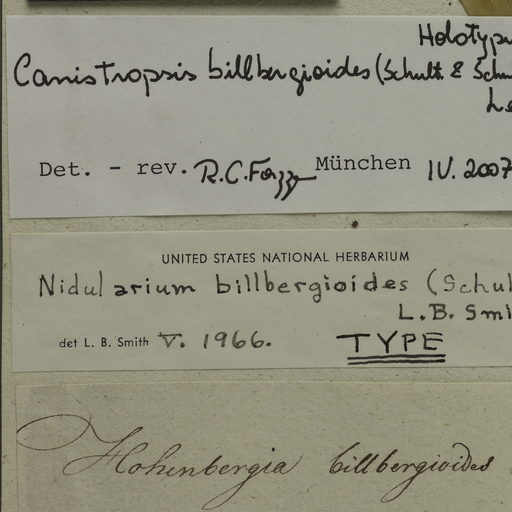 Holotypu
Canistropsis billbergioides (Schult & Schu
Le
Det. - rev. R.C.Forzza München IV. 2007
UNITED STATES NATIONAL HERBARIUM
Nidularium billbergioides (Schul
L.B. Smi
det L. B. Smith V. 1966. TYPE
Hohenbergia billbergioides